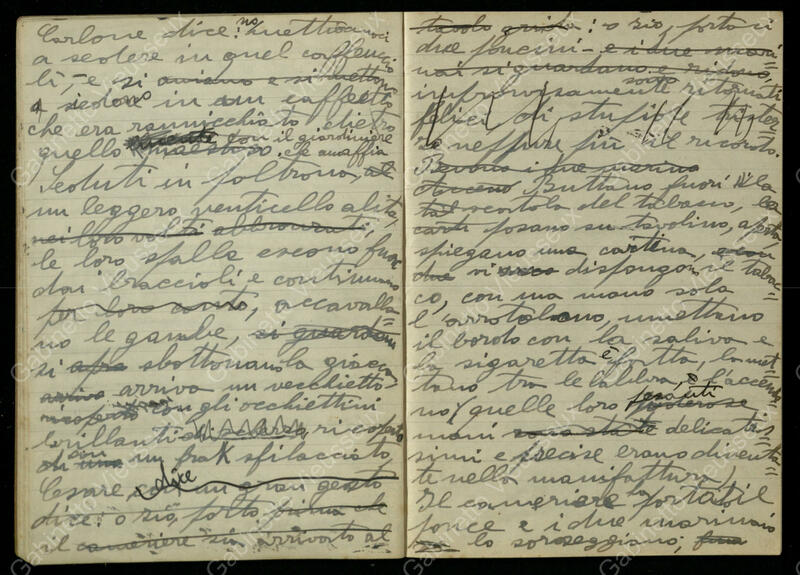 Carlone dice: no mettiamoci
a sedere in quel caffeuccio
lì, - e si
si siedono in un caffeetto
che era rannicchiato dietro
quello con il giardiniere
che annaffia
Seduti in poltrona, al
un leggero venticello alita,
nei loro volti abbronzati,
le loro spalle escono fuori
dai braccioli e continuano
per loro conto, accavalla=
no le gambe, si guardano
si sbottonano la giacca,
arriva arriva un vecchietto
con gli occhiettini
brillanti ricoperto
di un frak sfilacciato
Cesare con un gran gesto dice
dice: o sio, porto prima che
il cameriere sia arrivato al
tavolo grida: o sio, porto ci
due poncini - e i due mari=
nai si guardano e ridono,
improvvisamente sono ritornati
felici
ro neppure più il ricordo.
Bevono i due marinai
Buttano fuori la
scatola del tabacco, la
carta posano su tavolino,
spiegano una cartina, e con
due vi dispongon il tabac=
co, con una mano sola
l'arrotolano, umettano
il bordo con la saliva e
la sigaretta è fatta, la met=
tano tra le labbra, e l'accendo=
no (quelle loro pesanti
mani sono state delicatis=
sime e precise erano diventa=
te nella manifattura)
Il cameriere ha portato il
ponce e i due marinai
lo sorseggiano;